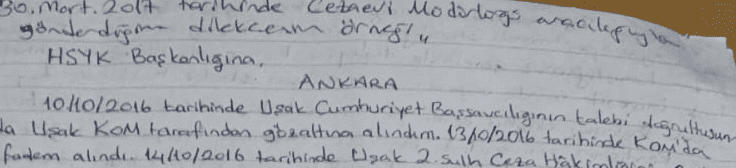 30. Mart. 2017 tarihinde Cezaevi Müdürlüğü aracılığıyla
gönderdiğim dilekçem örneği,,
HSYK Başkanlığına,
ANKARA
10/10/2016 tarihinde Uşak Cumhuriyet Başsavcılığının talebi doğrultusun
da Uşak KOM tarafından gözaltına alındım. 13/10/2016 tarihinde KOM'da
ifadem alındı. 14/10/2016 tarihinde Uşak 2. Sulh Ceza Hakimliği